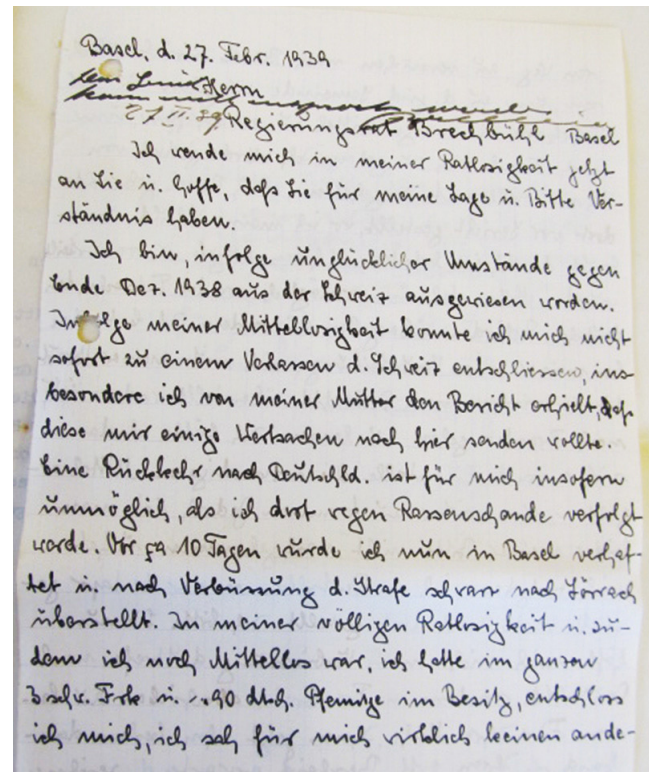 Basel, d. 27. Febr. 1939
Herrn
27 II. 39. Regierungsrat Brechbühl Basel
Ich wende mich in meiner Ratlosigkeit jetzt
an Sie u. hoffe, daß Sie für meine Lage u. Bitte Ver-
ständnis haben.
Ich bin, infolge unglücklicher Umstände gegen
Ende Dez. 1938 aus der Schweiz ausgewiesen worden.
Infolge meiner Mittellosigkeit konnte ich mich nicht
sofort zu einem Verlassen d. Schweiz entschliessen, ins-
besondere ich von meiner Mutter den Bericht erhielt, daß
diese mir einige Wertsachen nach hier senden wollte.
Eine Rückkehr nach Deutschld. ist für mich insofern
unmöglich, als ich dort wegen Rassenschande verfolgt
werde. Vor ca 10 Tagen wurde ich nun in Basel verhaf-
tet u. nach Verbüssung d. Strafe schwarz nach Lörrach
überstellt. In meiner völligen Ratlosigkeit u. zu-
dem ich noch Mittellos war, ich hatte im ganzen
3 schw. Frk u. 90 dtsch. Pfennige im Besitz, entschloss
ich mich, ich sah für mich wirklich keinen ande-